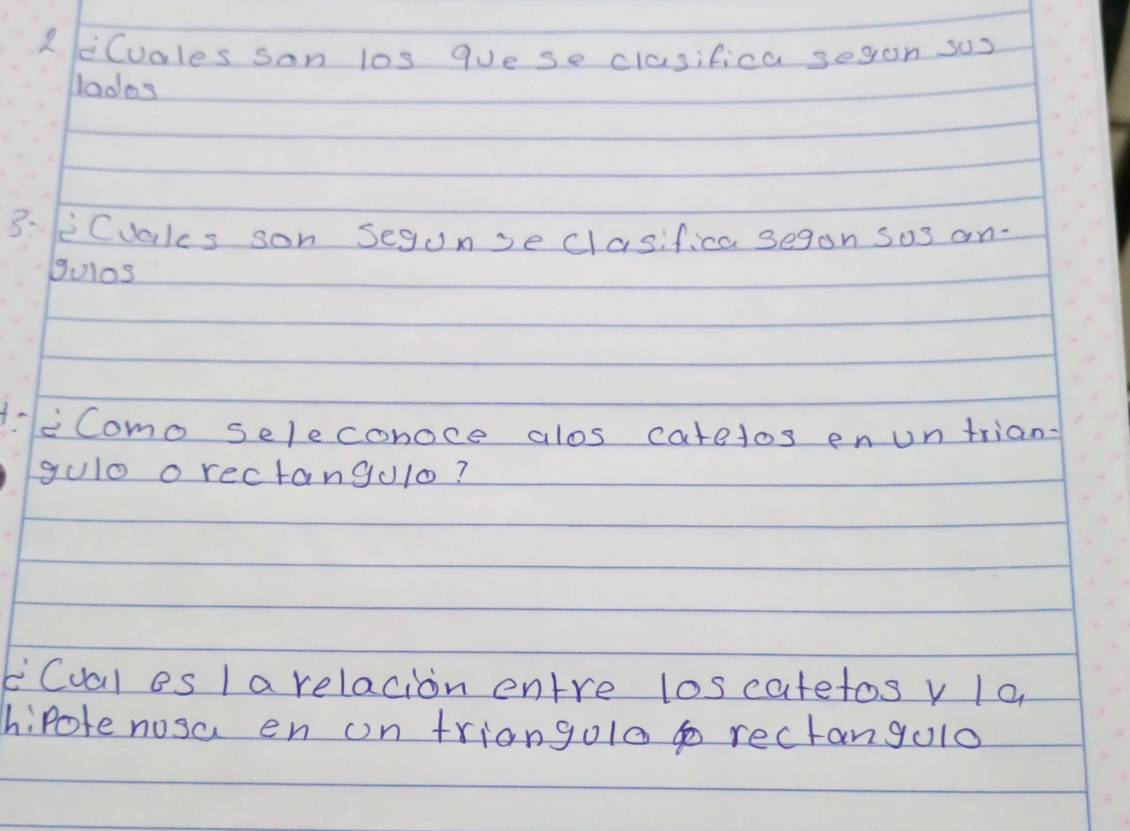 2 ¿Cuales son los que se clasifica segun sus
lados
3- ¿Cuales son Segun se clasifica segon sus an-
gulos
¿Como se le conoce alos catetos en un trian-
gulo o rectangulo?
¿Cual es la relaciòn entre los catetos y la
hipotenusa en un triangulo rectangulo